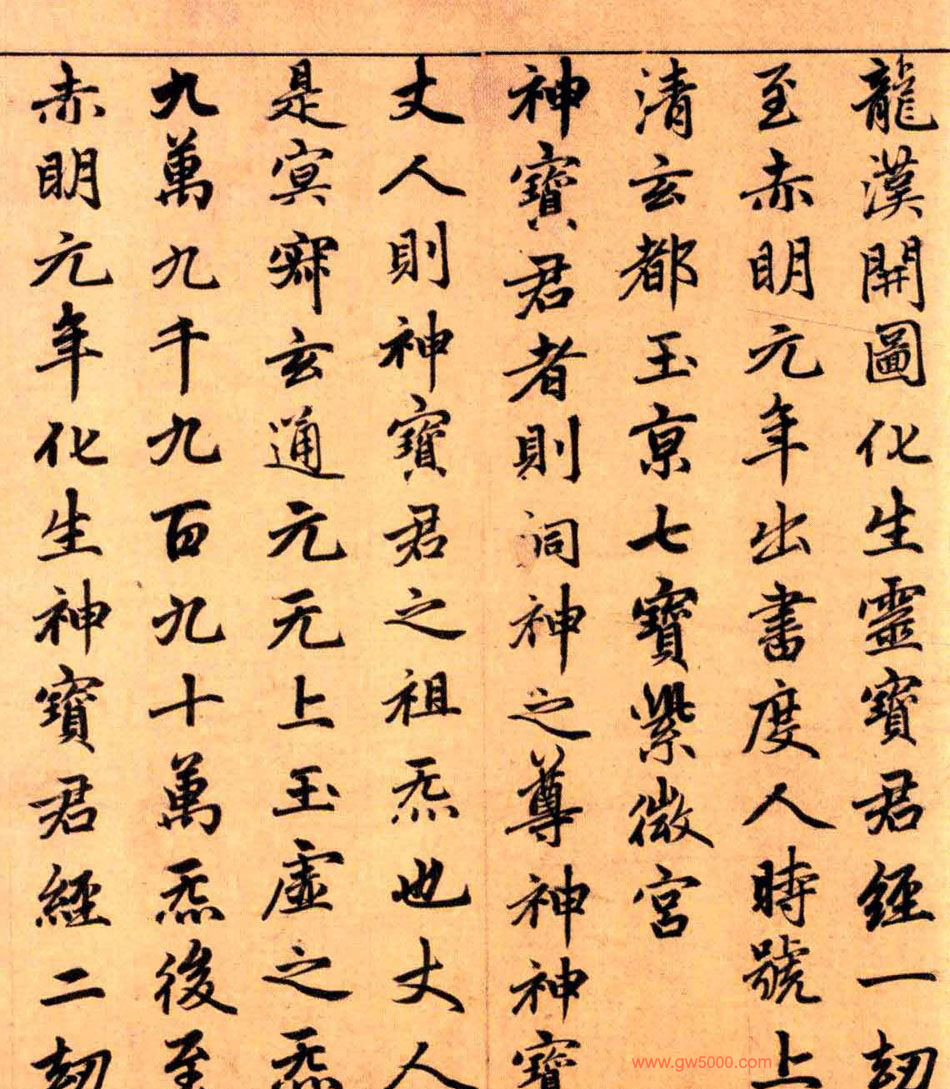 龍漢開圖化生靈寶君經一劫
至赤明元年出書度人時號上
清玄都玉京七寶紫微宮
神寶君者則洞神之尊神神寶
丈人則神寶君之祖炁也丈人
是㝠寂玄通元无上玉虛之炁
九萬九千九百九十萬炁後至
赤明元年化生神寶君經二劫
www.gw5000.com